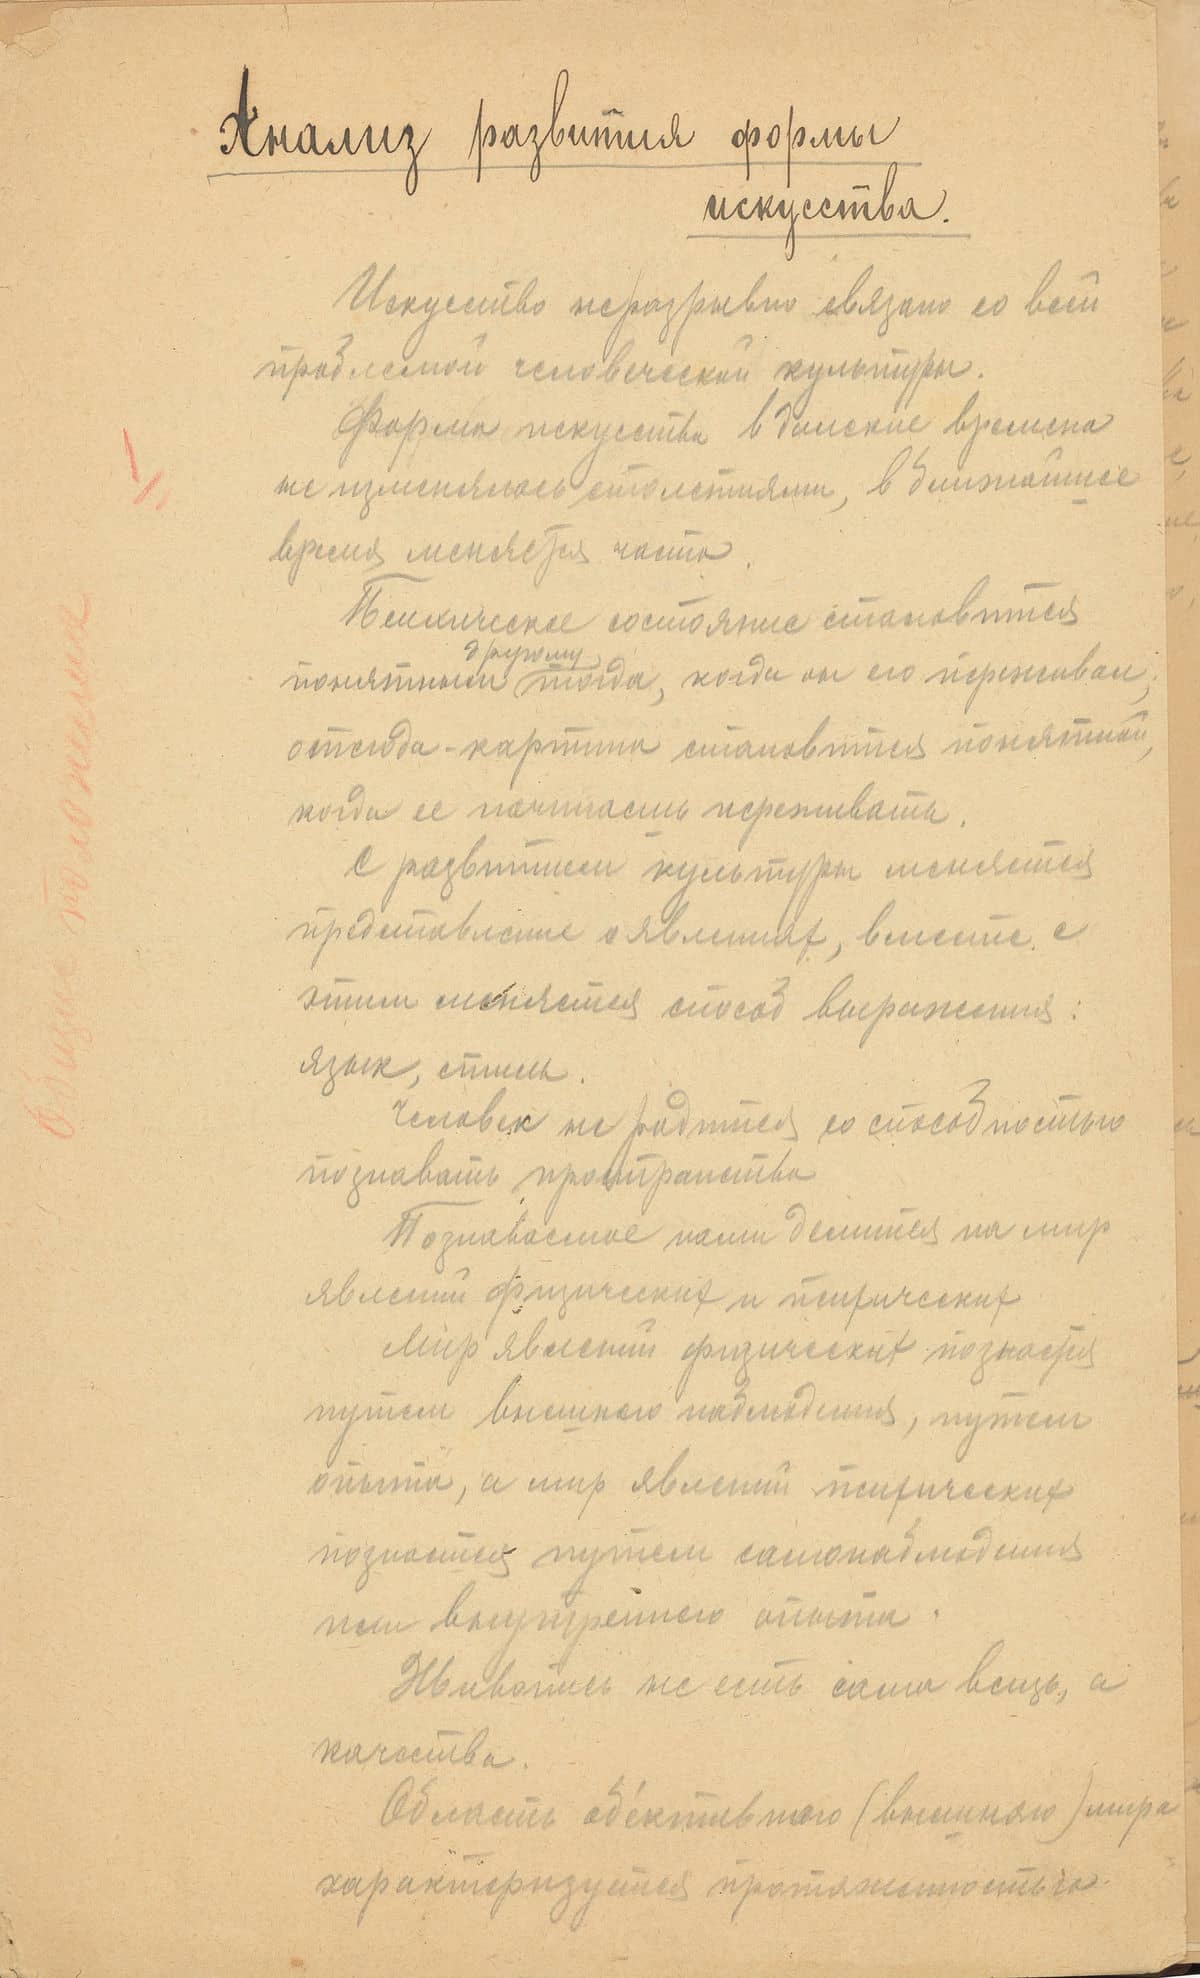 Анализ развития формы
искусства.
Искусство неразрывно связано со всей
проблемой человеческой культуры.
Форма искусства в далекие времена
не изменялась столетиями, в ближайшее
время меняется часто.
Психическое состояние становится
другому
понятным тогда, когда он его переживал,
отсюда - картина становится понятной,
когда ее начинаешь переживать.
С развитием культуры меняется
представление о явлениях, вместе с
этим меняется способ выражения:
язык, стиль.
Человек не родится со способностью
познавать пространство
Познаваемое нами делится на мир
явлений физических и психических
Мир явлений физических познается
путем внешнего наблюдения, путем
опыта, а мир явлений психических
познается путем самонаблюдения
или внутреннего опыта.
Живопись не есть сама вещь, а
качества.
Область объективного (внешнего) мира
характеризуется протяженностью
Общие положения
I